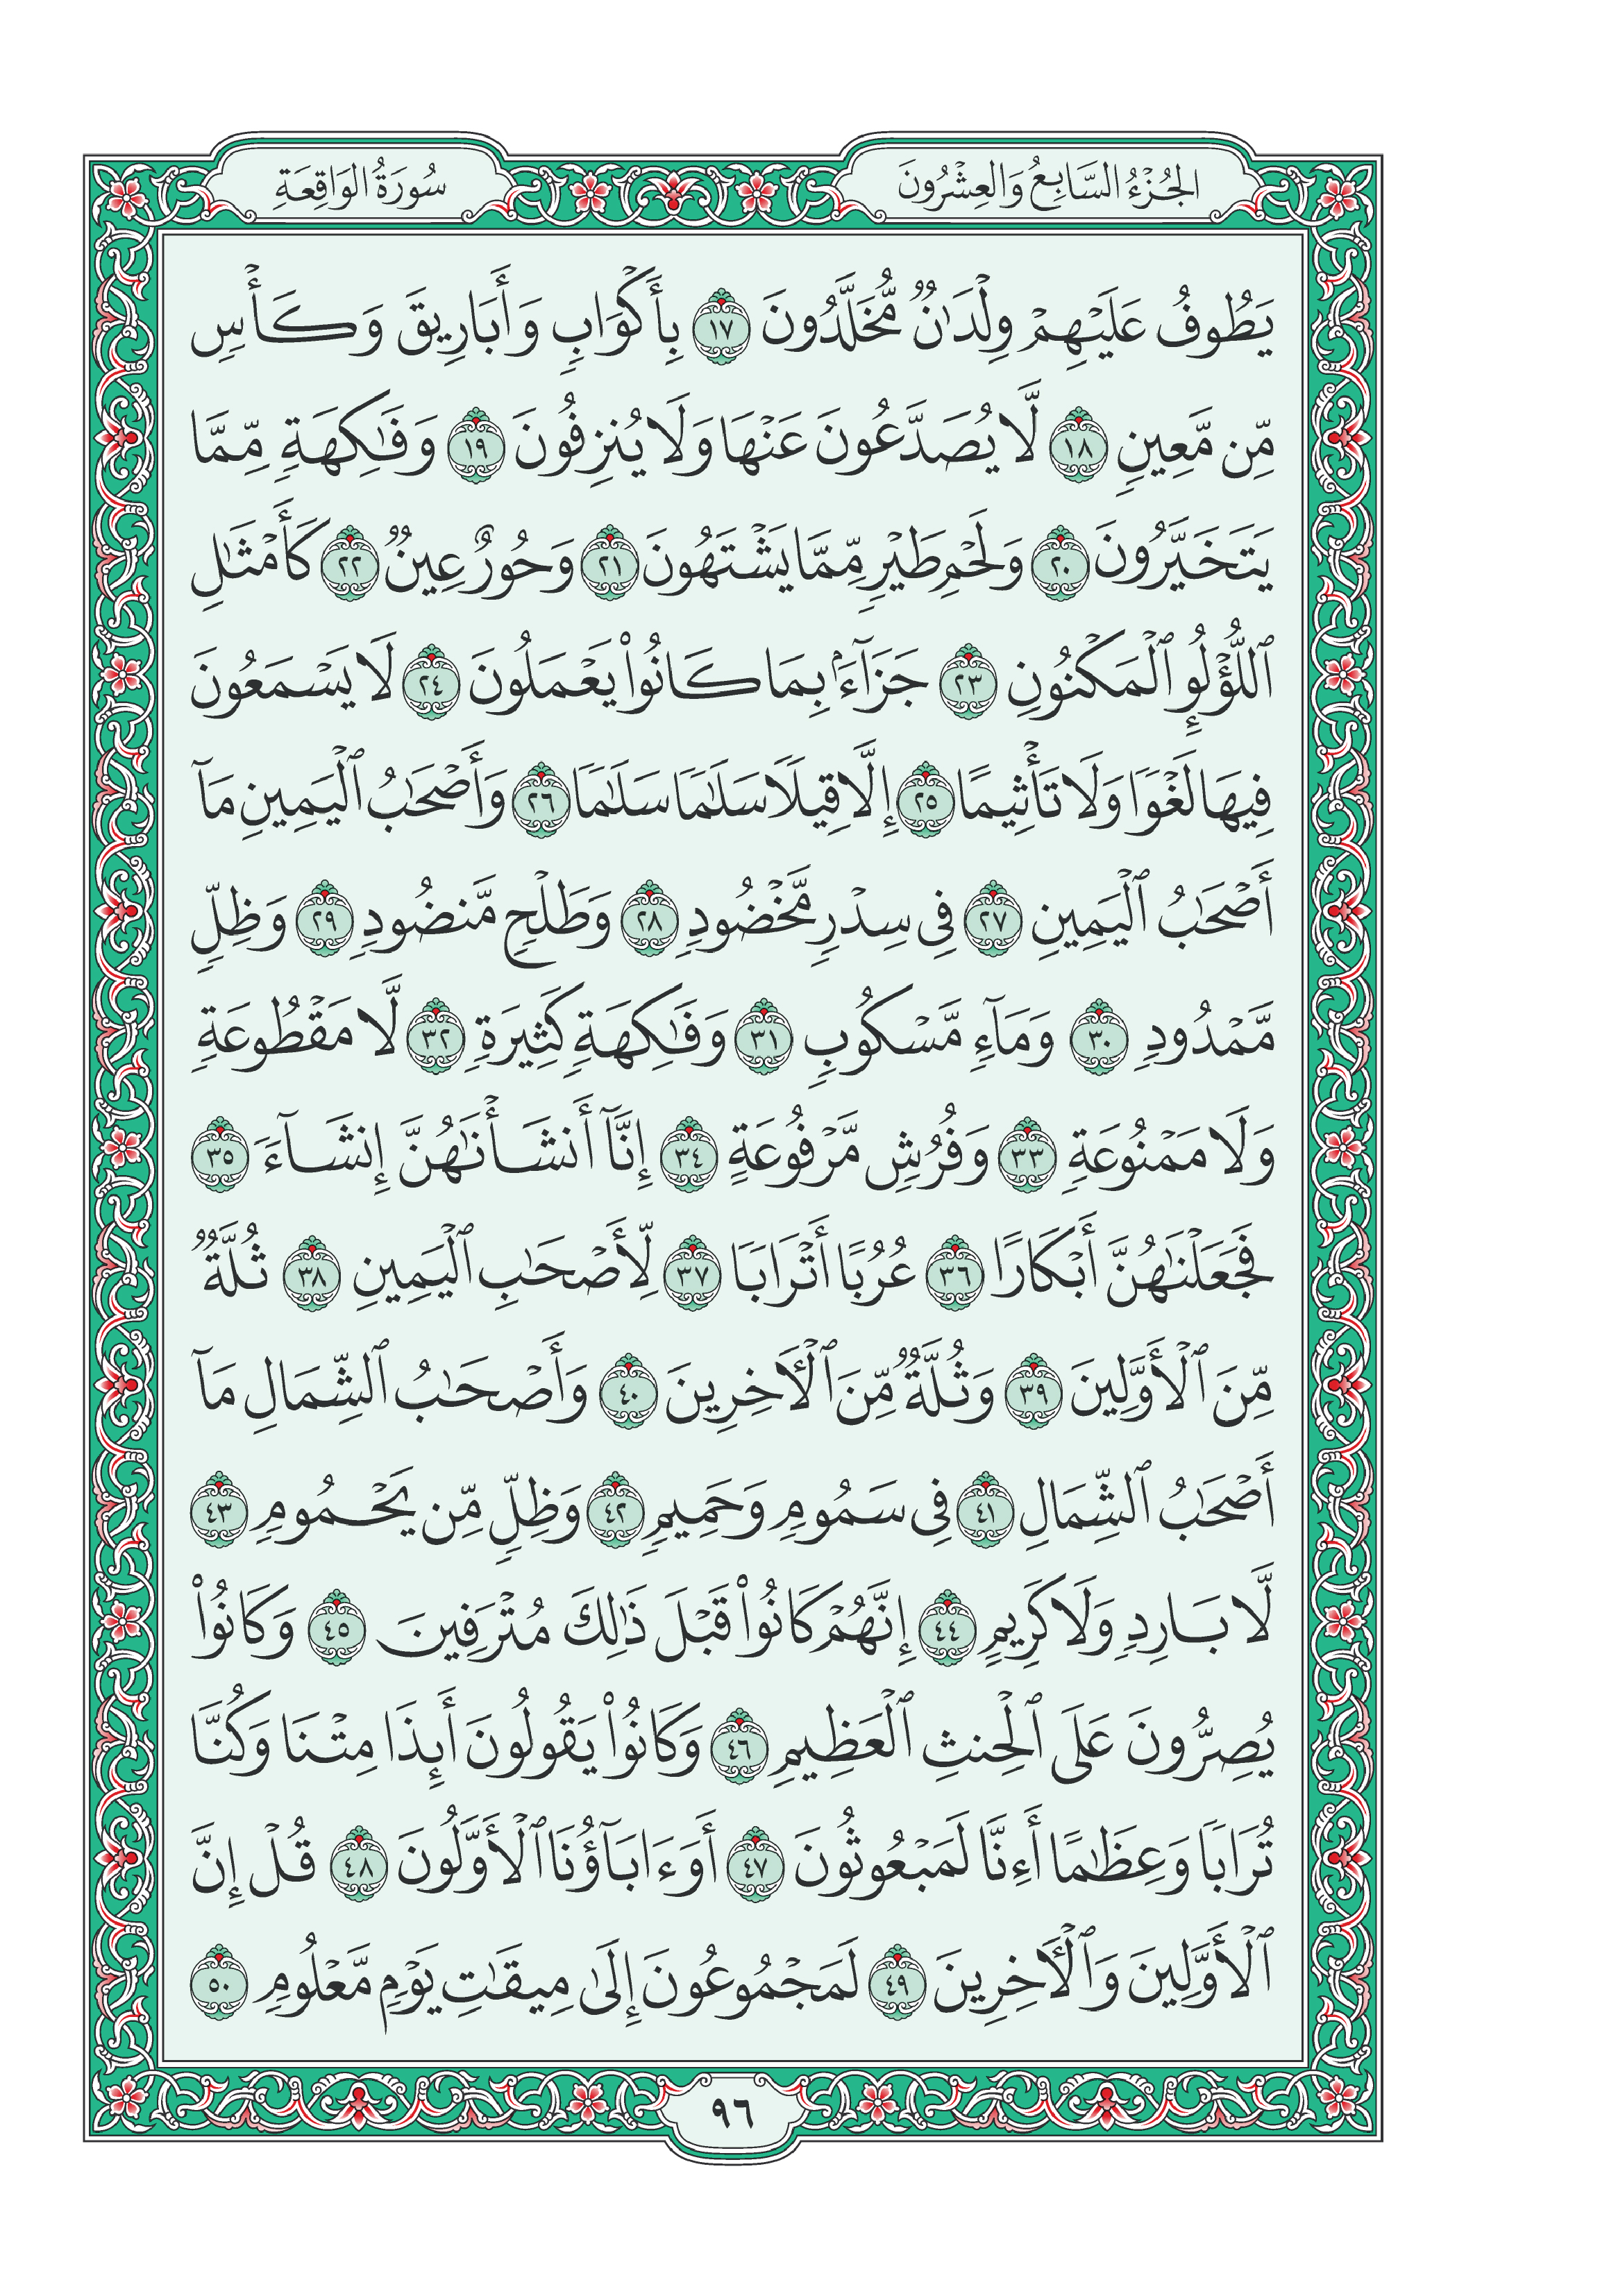 الجُزْءُ السَّابِعُ وَالعِشْرُونَ
سُورَةُ الوَاقِعَةِ
يَطُوفُ عَلَيْهِمْ وِلْدَٰنٌ مُّخَلَّدُونَ ١٧ بِأَكْوَابٍ وَأَبَارِيقَ وَكَأْسٍ
مِّن مَّعِينٍ ١٨ لَّا يُصَدَّعُونَ عَنْهَا وَلَا يُنزِفُونَ ١٩ وَفَٰكِهَةٍ مِّمَّا
يَتَخَيَّرُونَ ٢٠ وَلَحْمِ طَيْرٍ مِّمَّا يَشْتَهُونَ ٢١ وَحُورٌ عِينٌ ٢٢ كَأَمْثَٰلِ
ٱللُّؤْلُوِٕ ٱلْمَكْنُونِ ٢٣ جَزَآءًۢ بِمَا كَانُوا۟ يَعْمَلُونَ ٢٤ لَا يَسْمَعُونَ
فِيهَا لَغْوًا وَلَا تَأْثِيمًا ٢٥ إِلَّا قِيلًا سَلَٰمًا سَلَٰمًا ٢٦ وَأَصْحَٰبُ ٱلْيَمِينِ مَآ
أَصْحَٰبُ ٱلْيَمِينِ ٢٧ فِى سِدْرٍ مَّخْضُودٍ ٢٨ وَطَلْحٍ مَّنضُودٍ ٢٩ وَظِلٍّ
مَّمْدُودٍ ٣٠ وَمَآءٍ مَّسْكُوبٍ ٣١ وَفَٰكِهَةٍ كَثِيرَةٍ ٣٢ لَّا مَقْطُوعَةٍ
وَلَا مَمْنُوعَةٍ ٣٣ وَفُرُشٍ مَّرْفُوعَةٍ ٣٤ إِنَّآ أَنشَأْنَٰهُنَّ إِنشَآءً ٣٥
فَجَعَلْنَٰهُنَّ أَبْكَارًا ٣٦ عُرُبًا أَتْرَابًا ٣٧ لِّأَصْحَٰبِ ٱلْيَمِينِ ٣٨ ثُلَّةٌ
مِّنَ ٱلْأَوَّلِينَ ٣٩ وَثُلَّةٌ مِّنَ ٱلْءَاخِرِينَ ٤٠ وَأَصْحَٰبُ ٱلشِّمَالِ مَآ
أَصْحَٰبُ ٱلشِّمَالِ ٤١ فِى سَمُومٍ وَحَمِيمٍ ٤٢ وَظِلٍّ مِّن يَحْمُومٍ ٤٣
لَّا بَارِدٍ وَلَا كَرِيمٍ ٤٤ إِنَّهُمْ كَانُوا۟ قَبْلَ ذَٰلِكَ مُتْرَفِينَ ٤٥ وَكَانُوا۟
يُصِرُّونَ عَلَى ٱلْحِنثِ ٱلْعَظِيمِ ٤٦ وَكَانُوا۟ يَقُولُونَ أَئِذَا مِتْنَا وَكُنَّا
تُرَابًا وَعِظَٰمًا أَءِنَّا لَمَبْعُوثُونَ ٤٧ أَوَءَابَآؤُنَا ٱلْأَوَّلُونَ ٤٨ قُلْ إِنَّ
ٱلْأَوَّلِينَ وَٱلْءَاخِرِينَ ٤٩ لَمَجْمُوعُونَ إِلَىٰ مِيقَٰتِ يَوْمٍ مَّعْلُومٍ ٥٠
٩٦